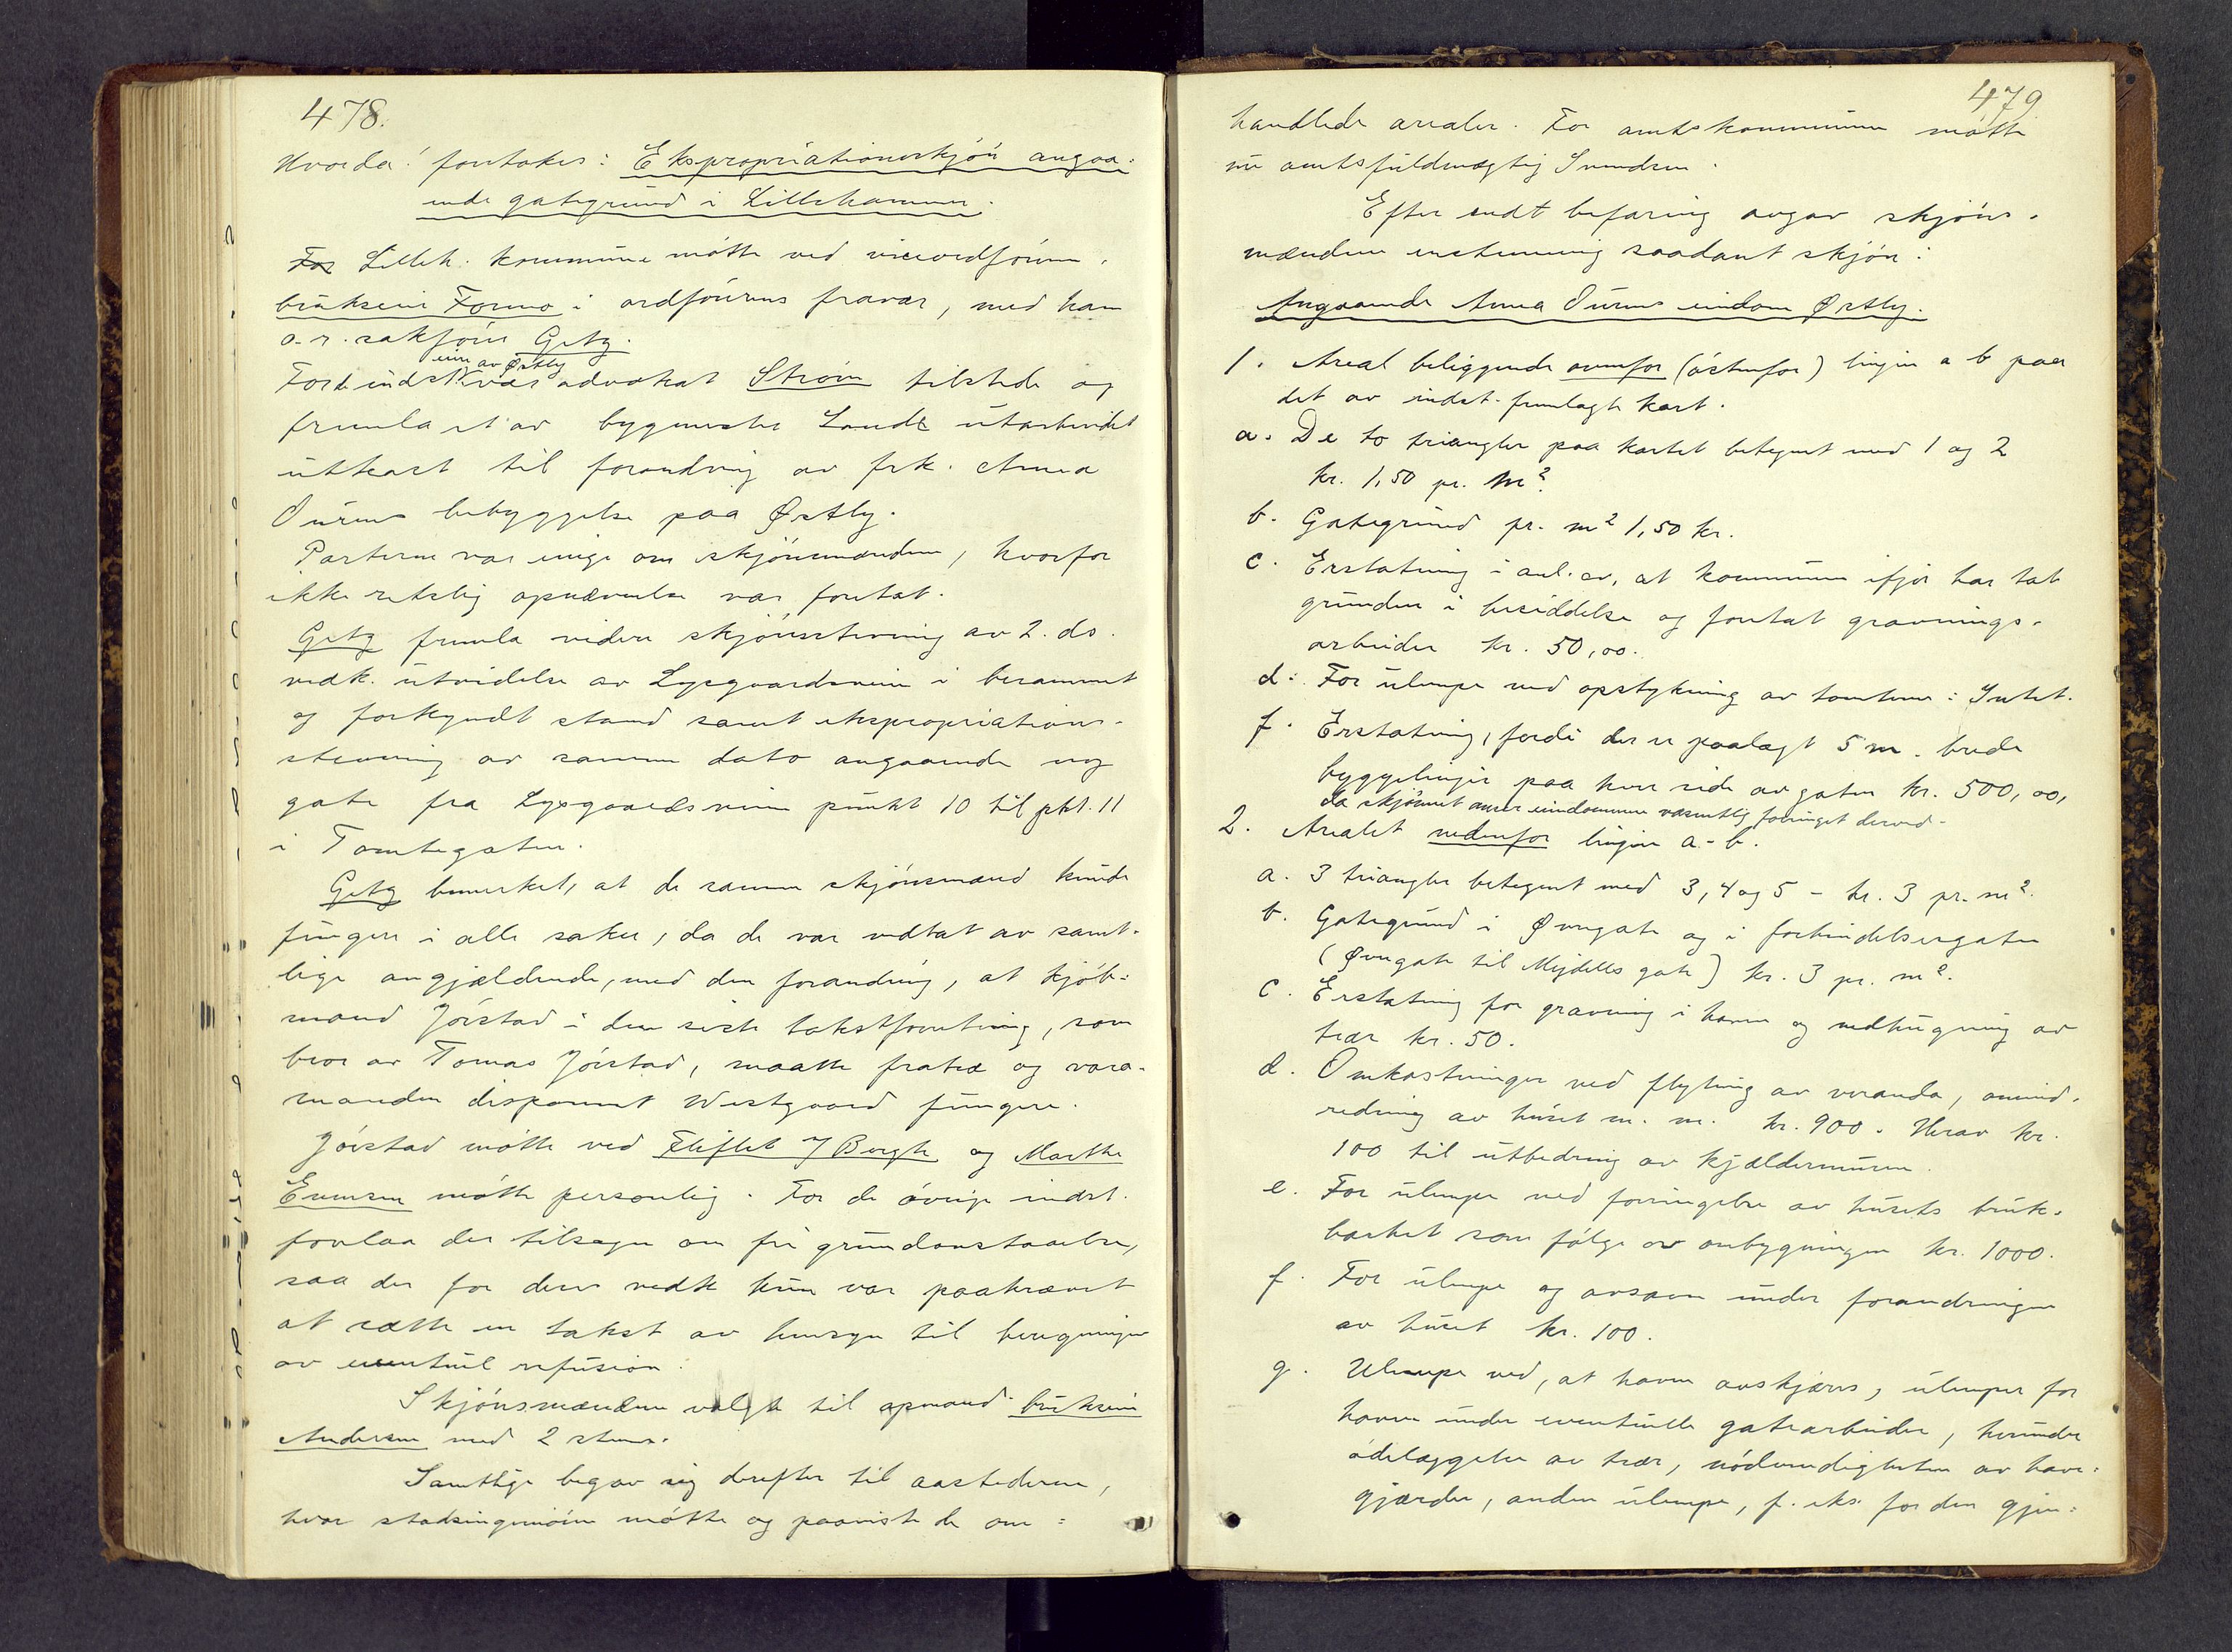 478.
Hvorda! foretokes: Ekspropriationsskjön angaa=
ende gategrund i Lillehammer.
For Lilleh. kommune mötte ved viceordförer,
brukseier Formo i ordförerens fravær, med ham
o.r. sakförer Getz.
For de indst. var advokat Ström tilstede og
eier av Østby
fremla et av bygmester Lande utarbeidet
utkast til forandring av frk. Anna
Durens bebyggelse paa Østby.
Parterne var enige om skjönsmændene, hvorfor
ikke retslig opnævnelse var foretat.
Getz fremla videre skjönsstevning av 2. ds.
vedk. utvidelse av Lysgaardsveien i berammet
og forkyndt stand samt ekspropriations-
stevning av samme dato angaaende ny
gate fra Lysgaardsveien punkt 10 til pkt. 11
i Tomtegaten.
Getz bemerket, at de samme skjönsmænd kunde
fungere i alle saker, da de var vedtat av samt-
lige angjældende, med den forandring, at kjöb=
mand Jörstad i den siste takstforretning, som
bror av Tomas Jörstad, maatte fratræ og vara-
manden disponent Westgaard fungere.
Jörstad mötte ved Fliflet / Berghe og Marthe
Evensen mötte personlig. For de övrige indst.
forelaa der tilsagn om fri grundavstaaelse,
saa der for deres vedk. kun var paakrævet
at sætte en takst av hensyn til beregningen
av eventuel refusion.
Skjönsmændene valgte til opmand brukseier
Andersen med 2 stemr.
Samtlige begav sig derefter til aastederne,
hvor stadsingeniören mötte og paaviste de om=
479
handlede arealer. For amtskommunen mötte
nu amtsfuldmægtig Svendsen.
Efter endt befaring avgav skjöns-
mændene enstemmig saadant skjön:
Angaaende Anna Durens eiendom Østby.
1. Areal beliggende ovenfor (östenfor) linjen a b paa
det av indst. fremlagte kart.
a. De to triangler paa kartet betegnet med 1 og 2
kr. 1,50 pr. m².
b. Gategrund pr. m² 1,50 kr.
c. Erstatning i anl. av, at kommunen ifjor har tat
grunden i besiddelse og foretat gravnings-
arbeider kr. 50,00.
d. For ulempe ved opstykning av tomtene: Intet.
f. Erstatning, fordi der er paalagt 5 m. brede
byggelinjer paa hver side av gaten kr. 500,00,
da skjönnet anser eiendommen væsentlig forringet derved.
2. Arealet nedenfor linjen a-b.
a. 3 triangler betegnet med 3, 4 og 5 - kr. 3 pr. m².
b. Gategrund i Øvregate og i forbindelsesgaten
(Øvregate til Mejdells gate) kr. 3 pr. m².
c. Erstatning for gravning i haven og nedhugning av
trær kr. 50.
d. Omkostninger ved flytning av veranda, omind-
redning av huset m. m. kr. 900. Herav kr.
100 til utbedring av kjældermuren.
e. For ulempe ved forringelse av husets bruk-
barhet som følge av ombygningen kr. 1000.
f. For ulempe og avsavn under forandringen
av huset kr. 100.
g. Ulempe ved, at haven avskjæres, ulemper for
haven under eventuelle gatearbeider, herunder
ödelæggelse av trær, nödvendigheten av have=
gjærder, anden ulempe, f. eks. for den gjen=